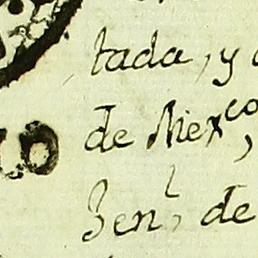 tada, y
de Mex^co,
Zen^l, de